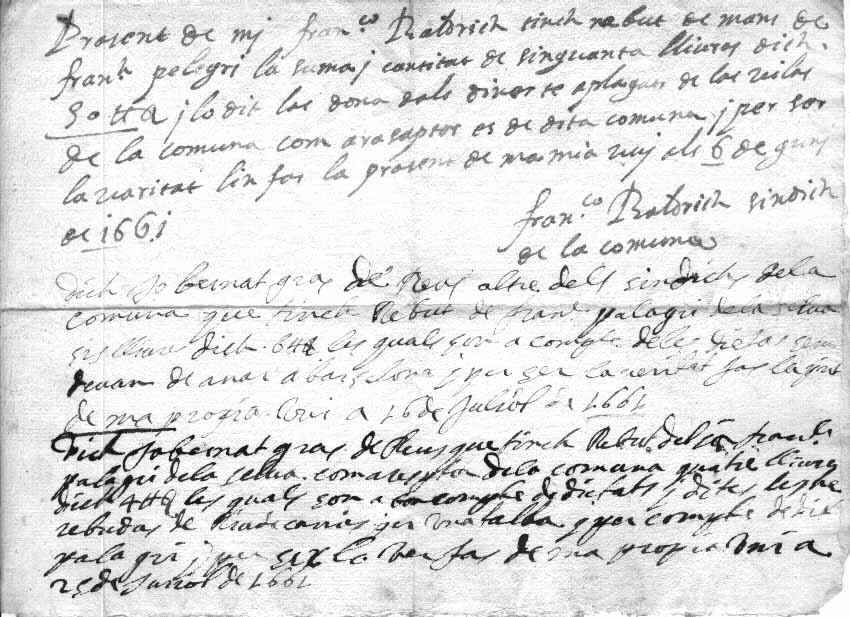 Present de mj fran.co Raldrich tinch rabut de mans de
fran.c pelegri la suma j cantitat de sinquanta lliures dich
50 ll jlo dit las dona dels dines te aplagats de las vilas
de la comuna com arasaptor es de dita comuna j per ser
la varitat lin fas la present de ma mia vuj als 6 de gunj
de 1661
fran.co Raldrich sindich
de la comuna
Dich jo bernat gras de Reus altre dels sindichs dela
comuna que tinch Rebut de fran.c palagri dela selua
sis lliures dich 6 ll les quals son a compte de les dietas
devan de anar a barselona j per ser la veritat fas la pnt
de ma propria vui a 16 de Juliol de 1661
Dich jo bernat gras de Reus que tinch Rebut del fran.c
palagri dela selua comareseptor dela comuna quatre lliures
dich 4 ll les quals son a compte de dietats j dites les he
rebudas de per una talba j per compte de dit
palagri j per la ver fas de ma propia vui a
25 de Juliol de 1661